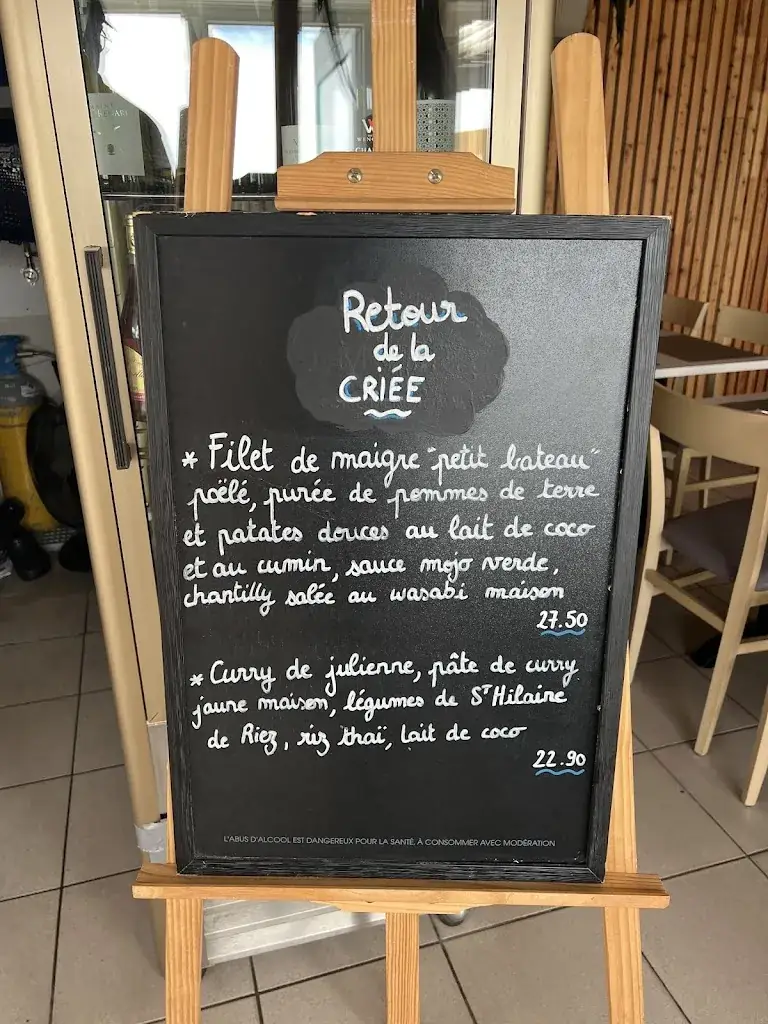 Retour
de la
CRIÉE
* Filet de maigre "petit bateau"
poëlé, purée de pommes de terre
et patates douces au lait de coco
et au cumin, sauce mojo verde,
chantilly salée au wasabi maison
27.50
* Curry de julienne, pâte de curry
jaune maison, légumes de St Hilaire
de Riez, riz thaï, lait de coco
22.90
L'ABUS D'ALCOOL EST DANGEREUX POUR LA SANTÉ, À CONSOMMER AVEC MODÉRATION